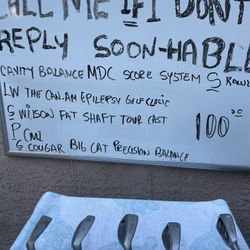 CALL ME IF I DON'T
REPLY SOON-HABL
CAVITY BALANCE MDC SCORE SYSTEM S
LW THE CAN.AM EPILEPSY GOLF CLASSIC
S WILSON FAT SHAFT TOUR CAST
100
P CMI
S COUGAR BIG CAT PRECISION BALANCE